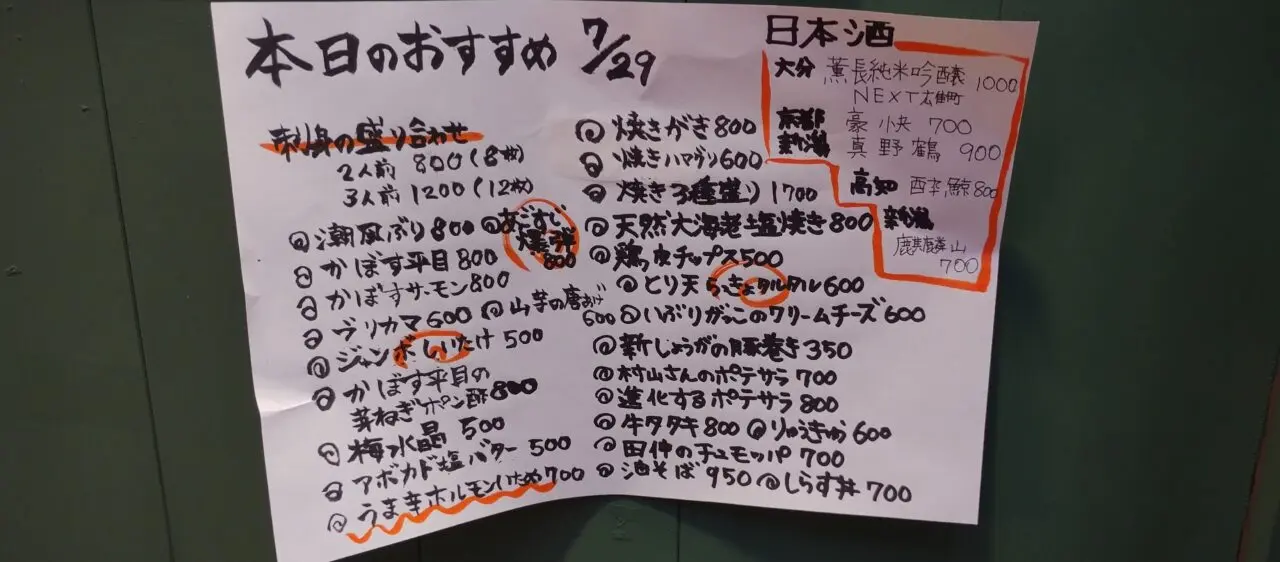 本日のおすすめ 7/29
刺身の盛り合わせ
2人前 800(8枚)
3人前 1200(12枚)
@潮風ぶり800
@あごすじ
爆弾
800
@かぼす平目800
@かぼすサーモン800
@ヴリカマ600
@山芋の唐あげ
600
@ジャンボしいたけ 500
@かぼす平目の
芽ねぎポン酢800
@梅水晶 500
@アボカド塩バター 500
@うま辛ホルモンいため700
@焼きがき800
@焼きハマグリ600
@焼き3種盛り1700
@天然大海老塩焼き800
@鶏皮チップス500
@とり天らっきょタルタル600
@いぶりがっこのクリームチーズ600
@新しょうがの豚巻き350
@村山さんのポテサラ700
@進化するポテサラ800
@牛タタキ800 @りゅうきゅう600
@田仲のチュモッパ700
@油そば950 @しらす丼700
日本酒
大分 薫長純米吟醸 1000
NEXT
京都 豪快 700
新潟 真野鶴 900
高知 酔鯨800
新潟
麒麟山
700